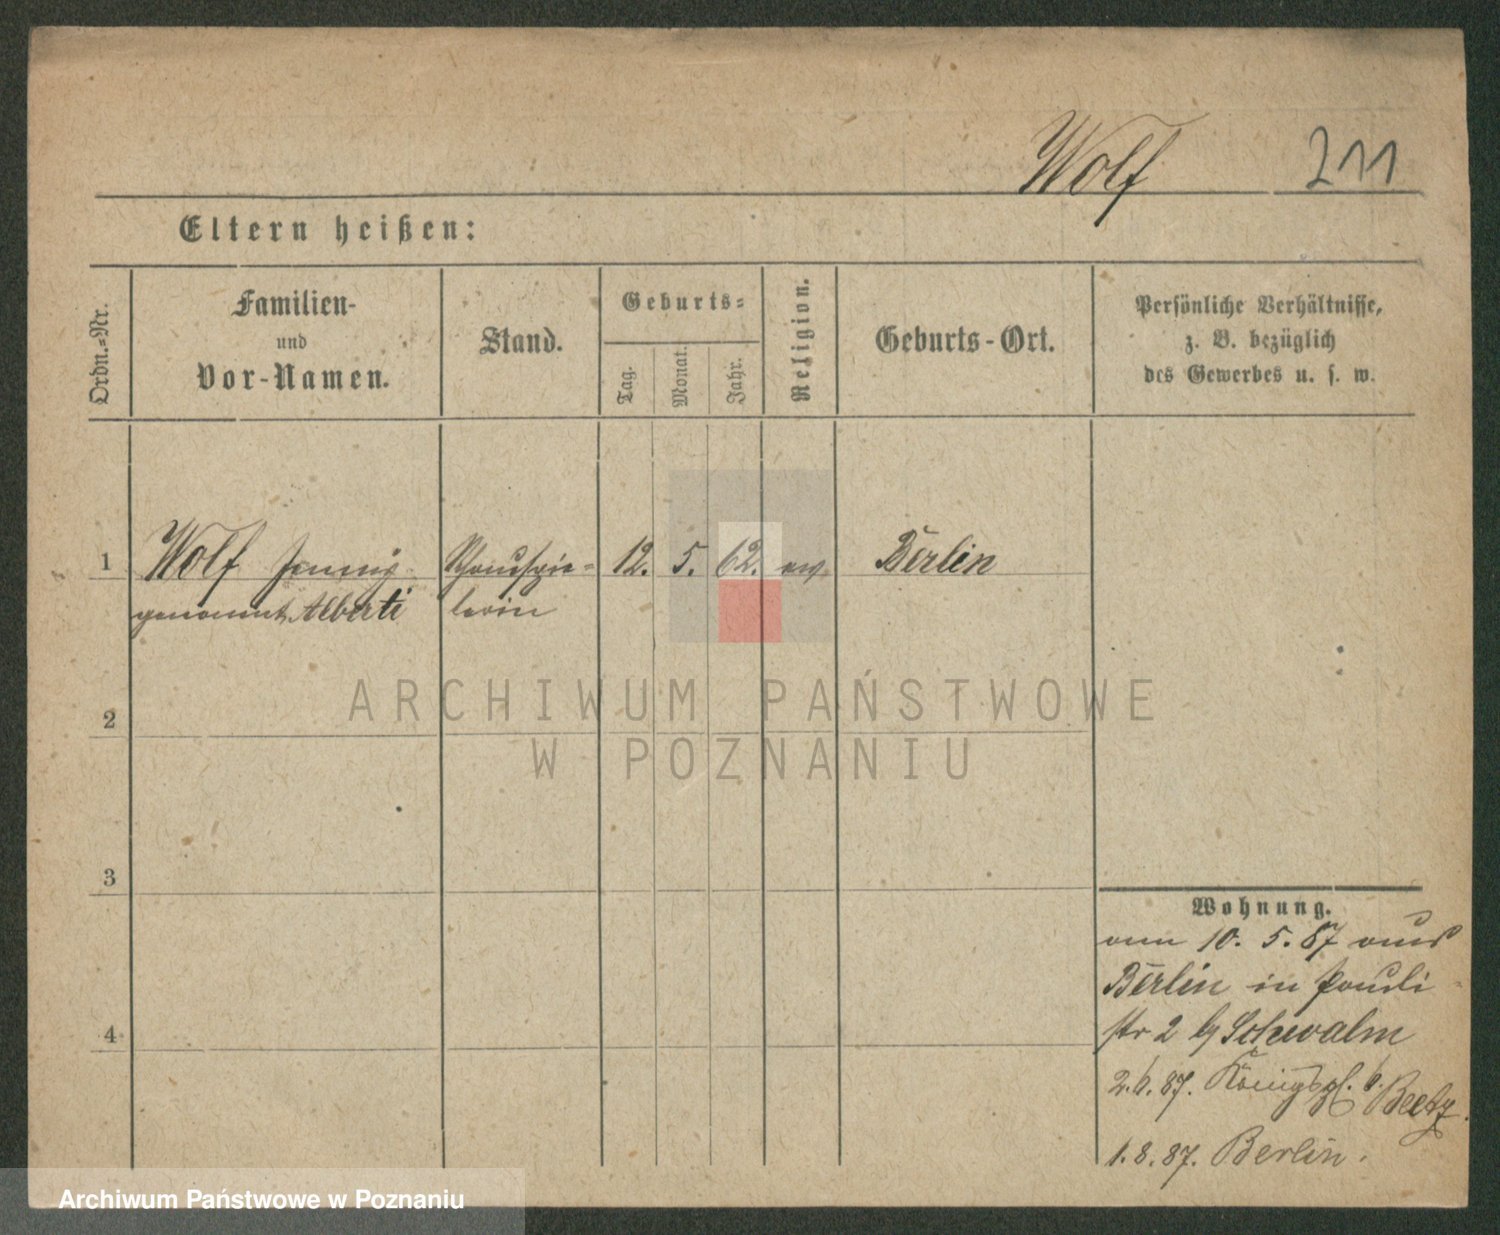 Wolf 211
Eltern heißen:
Ordn.-Nr.
Familien-
und
Vor-Namen.
Stand.
Geburts-
Tag.
Monat.
Jahr.
Religion.
Geburts-Ort.
Persönliche Verhältnisse,
z. B. bezüglich
des Gewerbes u. s. w.
1 Wolf Jenny Schauspie- 12. 5. 62. ev. Berlin
genannt Alberti lerin
2
3
4
Wohnung.
am 10. 5. 87 aus
Berlin in Pauli-
str 2 b/ Schwalm
2.6.87. Königspl. 6. Beetz.
1.8.87. Berlin.
ARCHIWUM PAŃSTWOWE
W POZNANIU
Archiwum Państwowe w Poznaniu